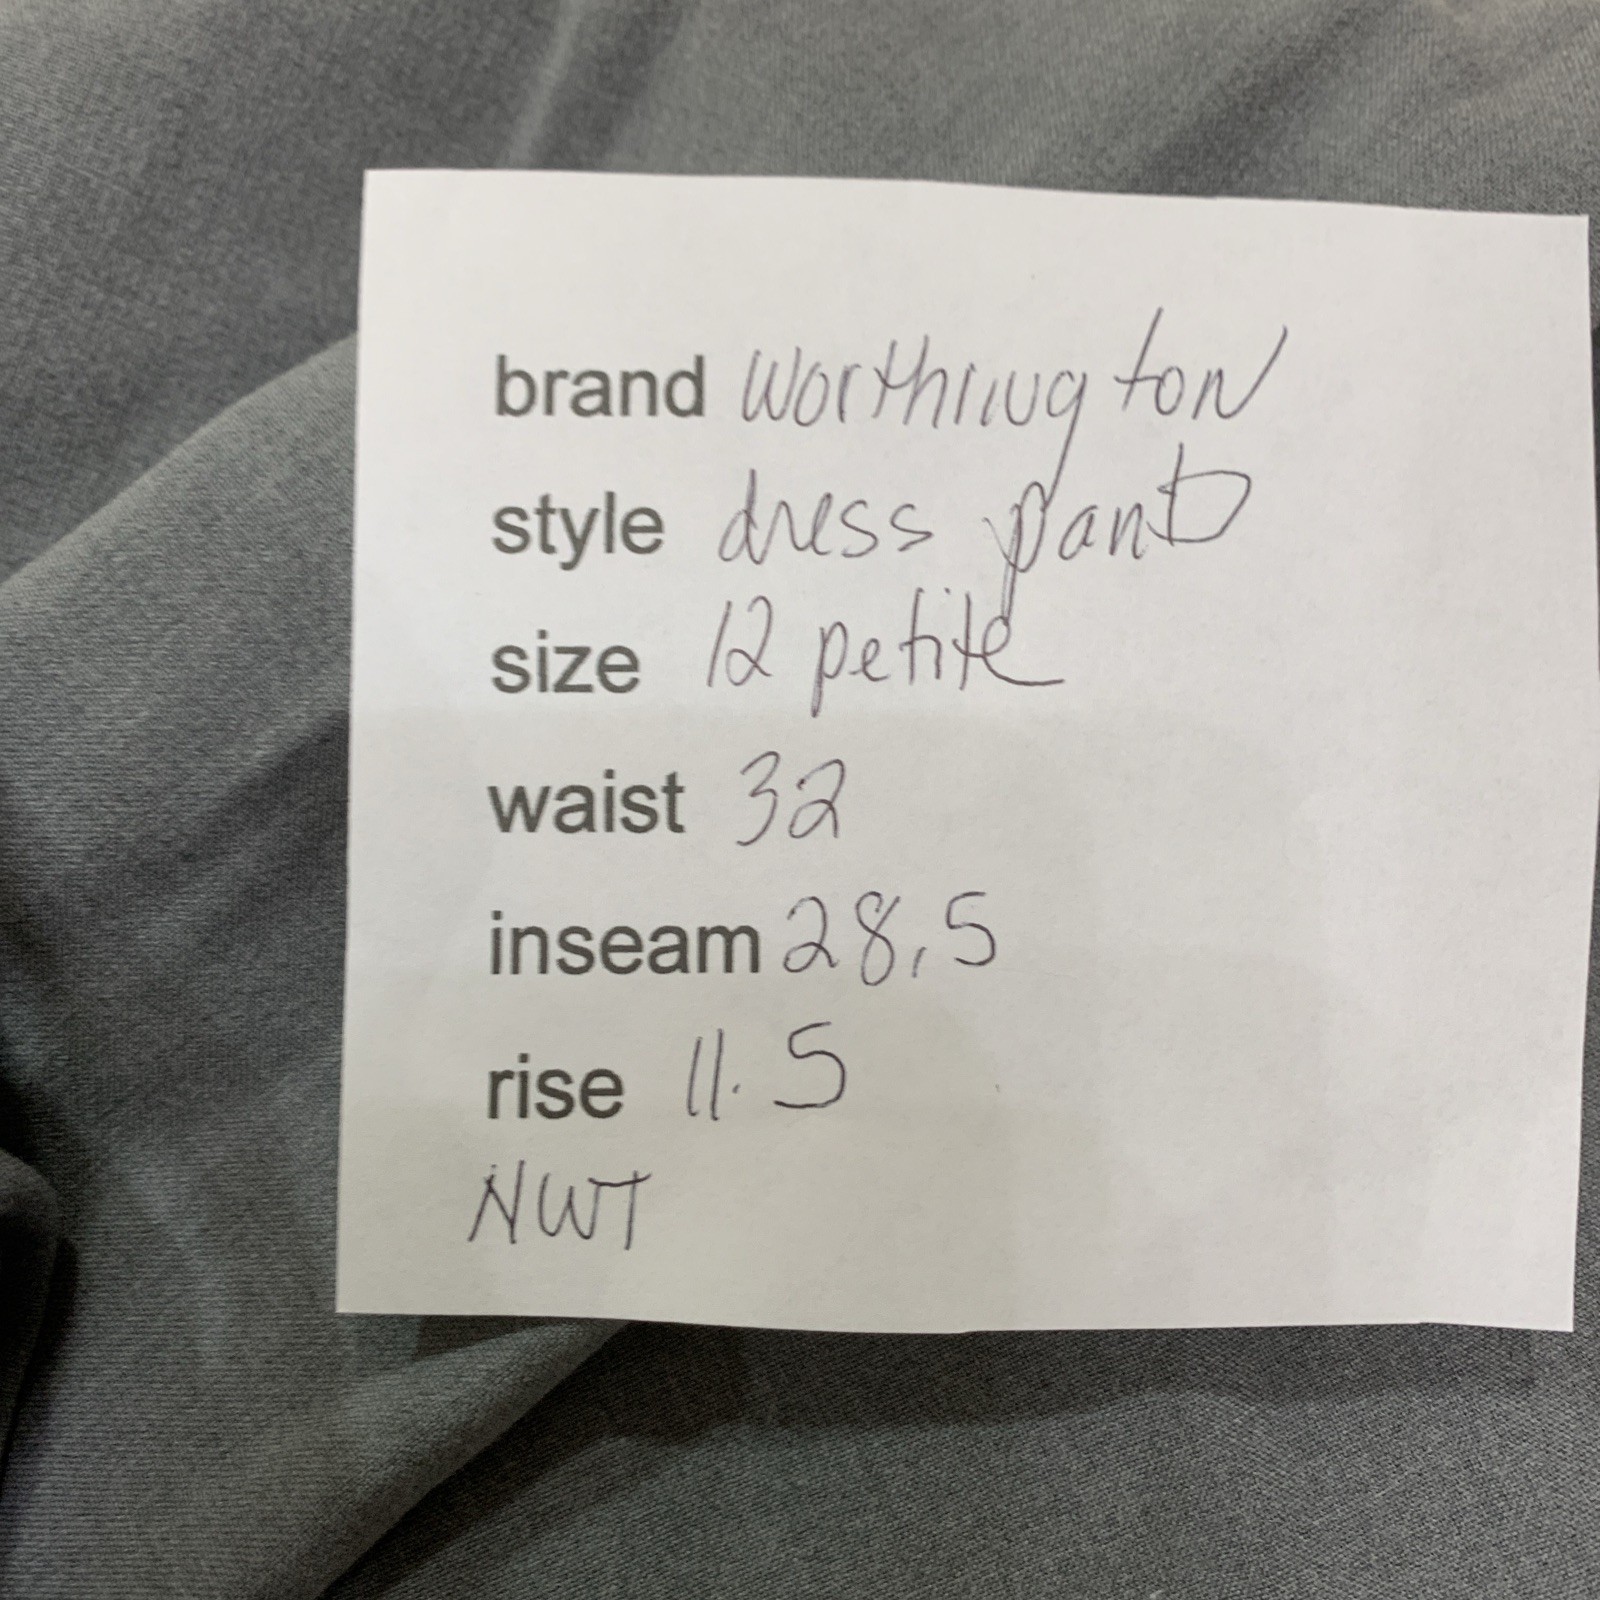 brand Worthington
style dress pants
size 12 petite
waist 32
inseam 28.5
rise 11.5
NWT